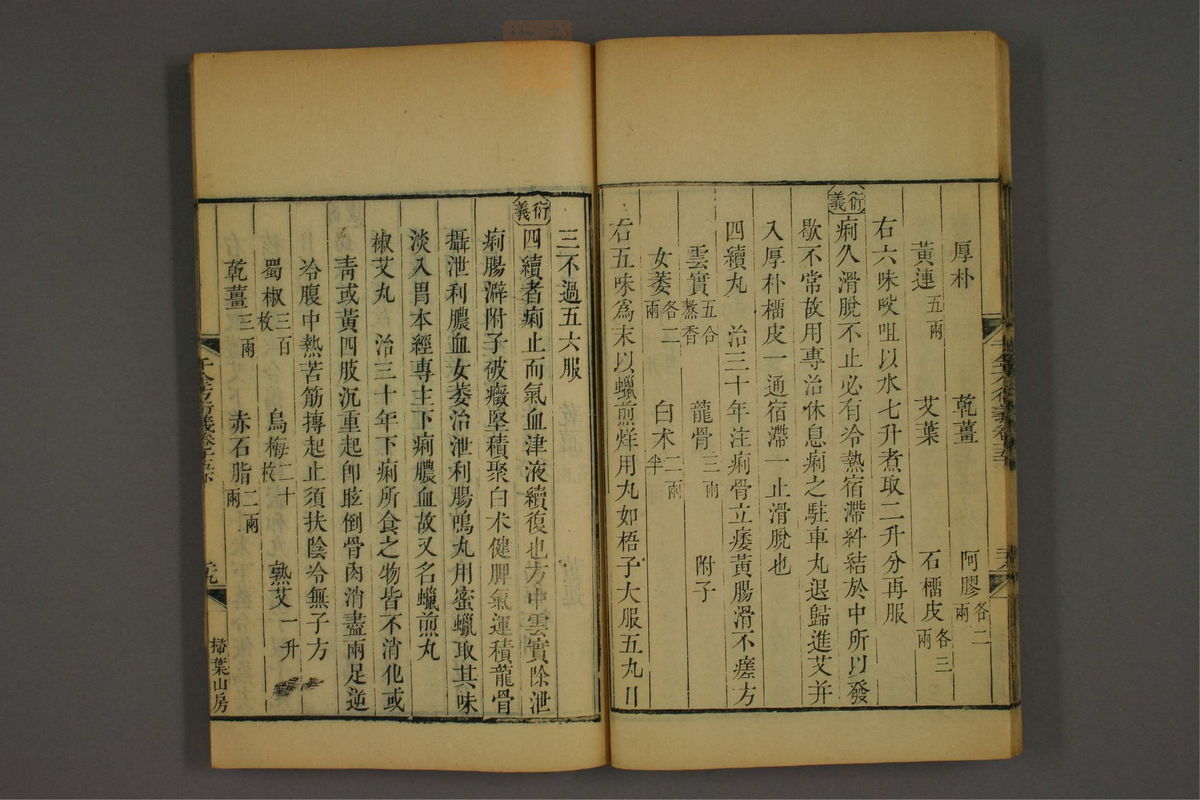 厚朴 乾薑 阿膠各二兩
黃連五兩 艾葉 石榴皮各三兩
右六味㕮咀以水七升煮取二升分再服
衍義 痢久滑脫不止必有冷熱宿滯糾結於中所以發
歇不常故用專治休息痢之駐車丸退歸進艾并
入厚朴榴皮一通宿滯一止滑脫也
四續丸 治三十年注痢骨立痿黃腸滑不瘥方
雲實五合蒸香 龍骨三兩 附子
女萎各二兩 白朮二兩半
右五味為末以蠟煎烊用丸如梧子大服五丸日
三不過五六服
衍義 四續者痢止而氣血津液續復也方中雲實除泄
痢腸澼附子破癥堅積聚白朮健脾氣運積龍骨
攝泄利膿血女萎治泄利腸鳴丸用蜜蠟取其味
淡入胃本經專主下痢膿血故又名蠟煎丸
椒艾丸 治三十年下痢所食之物皆不消化或
靑或黃四肢沉重起卽眩倒骨肉消盡兩足逆
冷腹中熱苦筋轉起止須扶陰冷無子方
蜀椒三百枚 烏梅二十枚 熟艾一升
乾薑三兩 赤石脂二兩
千金方衍義卷十五下 二九 掃葉山房